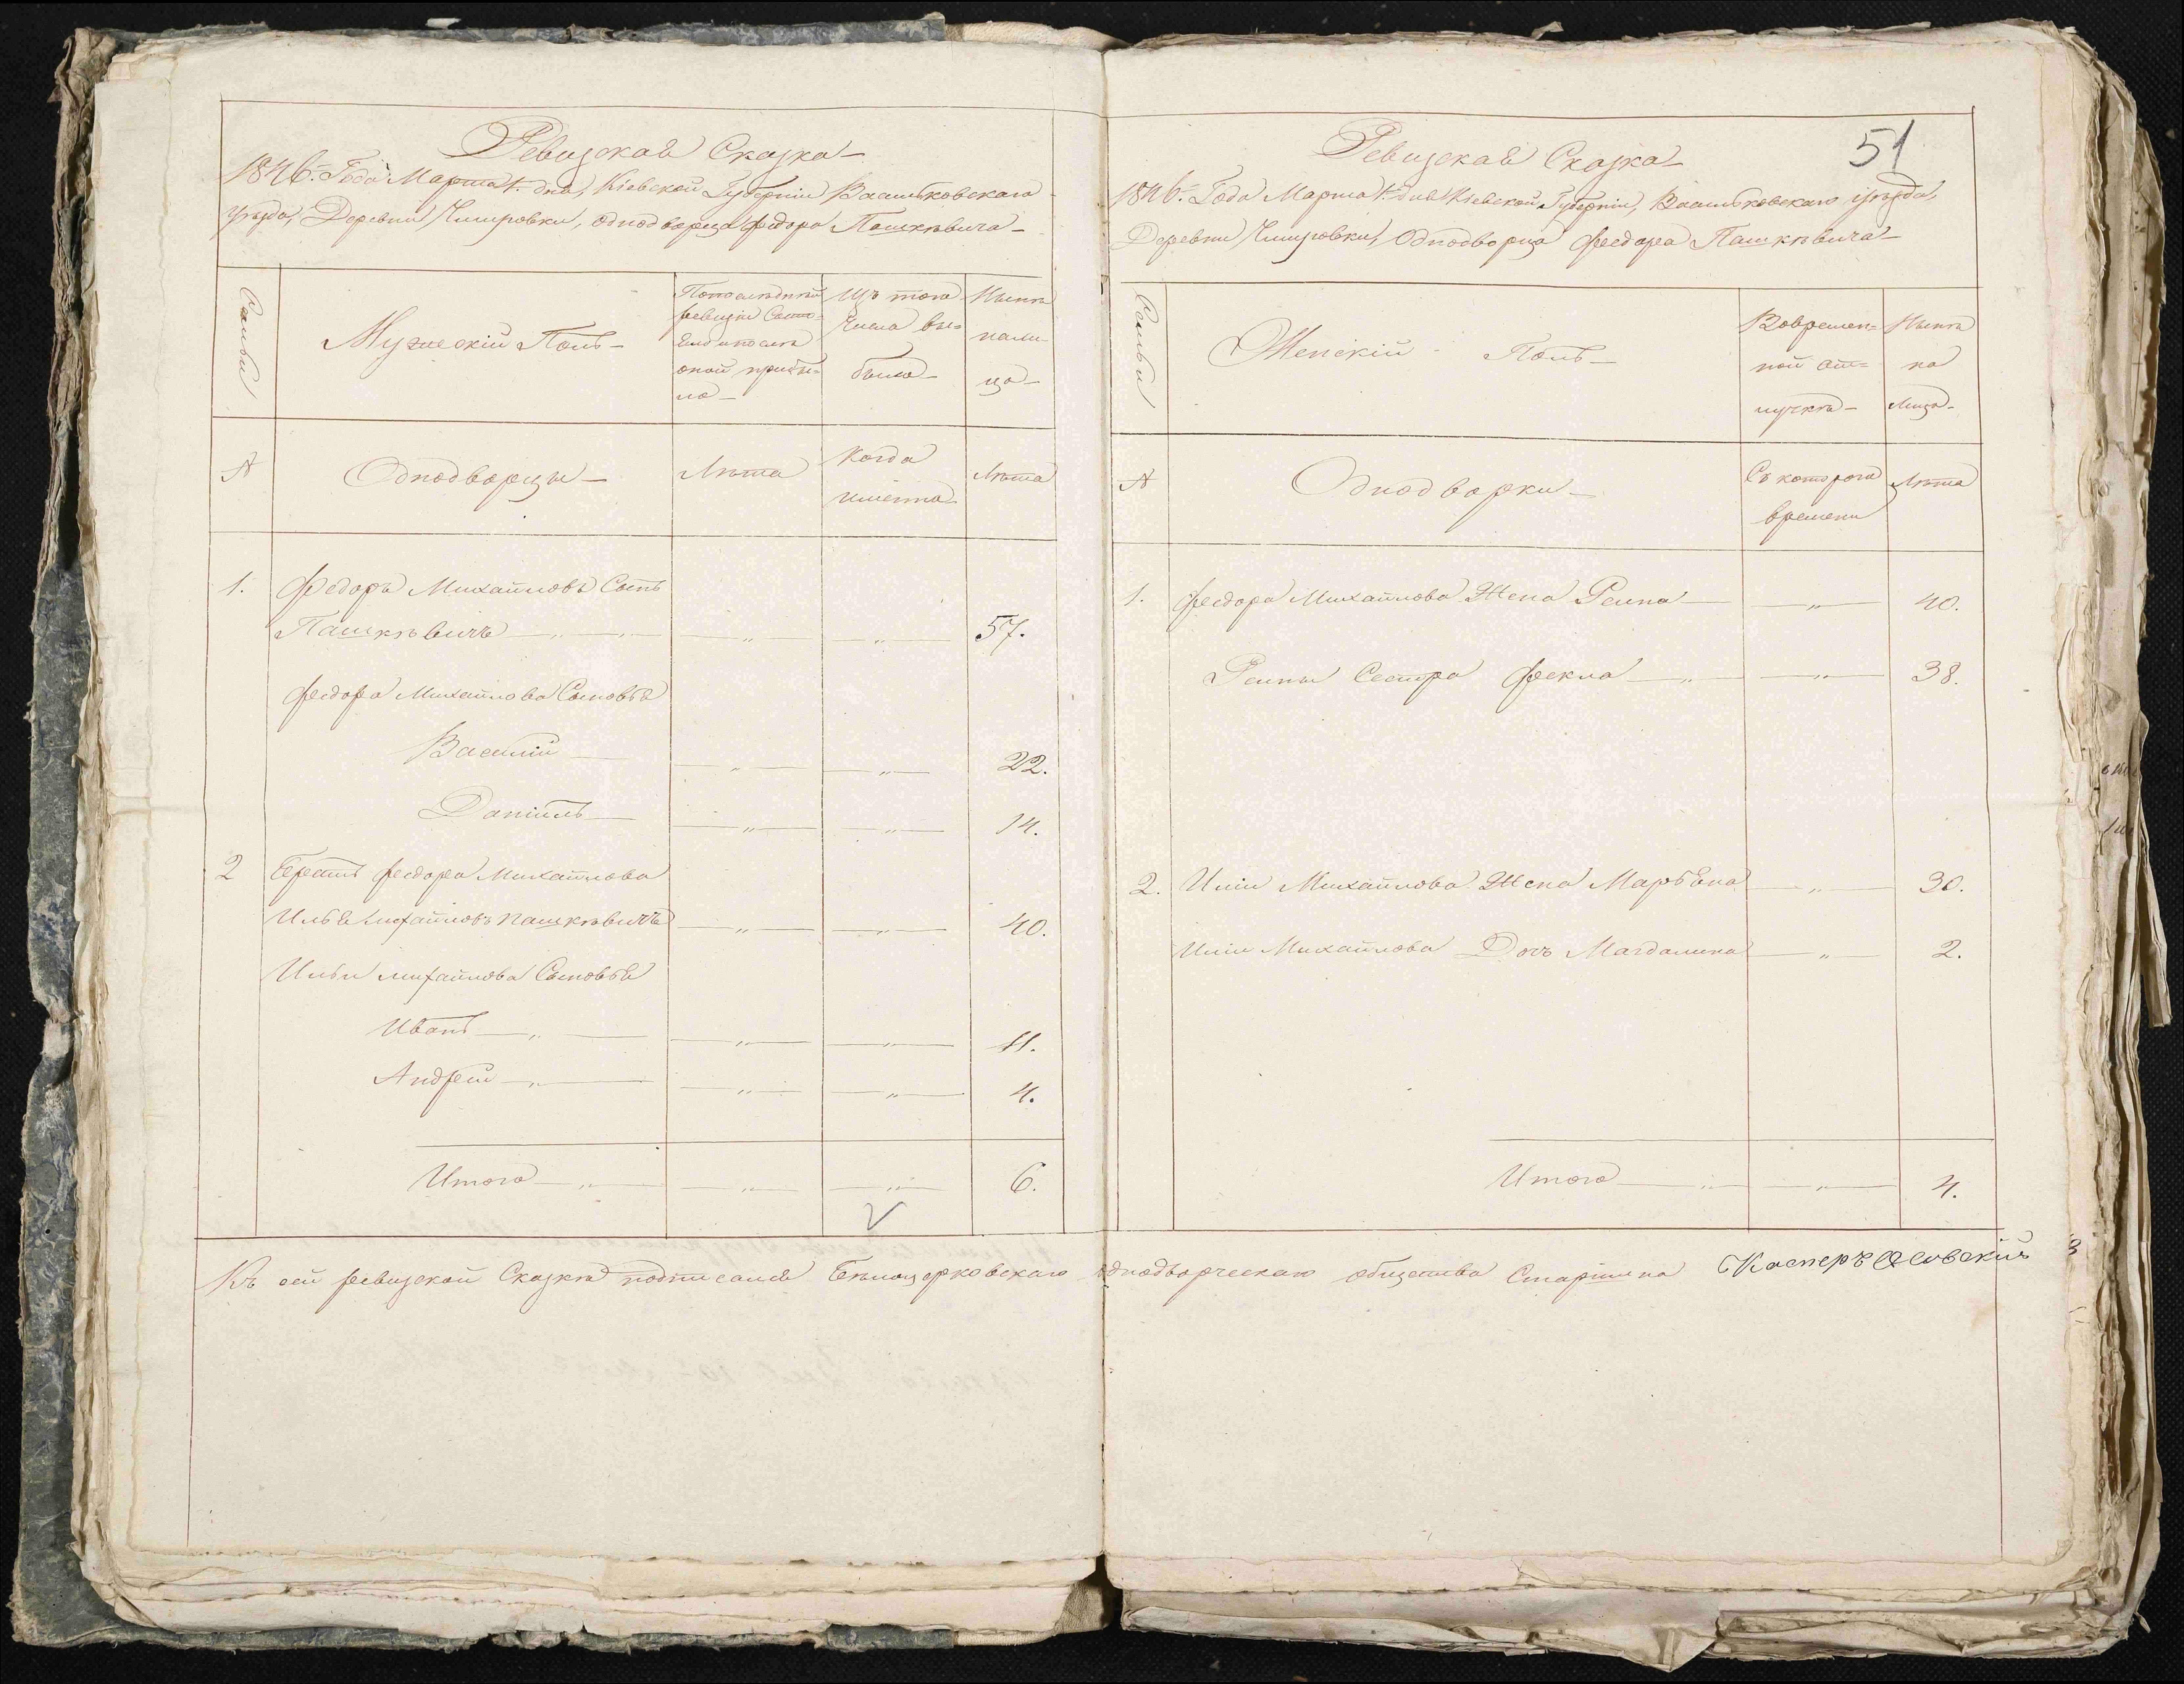 Ревизская Сказка
1846. Года Марта 1. дня, Кіевской Губерніи Васильковскаго
уѣзда, Деревни Чипировки, однодворца Федора Пашкѣвича
Семьи
Мужескій Полъ
Попослѣдній ревизіи Состо=
яло и послѣ
оной прибы=
ло
Изъ того
Числа вы=
было
Нынѣ
нали=
цо
А
Однодворцы
Лѣта
Когда
именно
Лѣта
1. Федоръ Михайловъ Сынъ
Пашкѣвичъ 57.
Федора Михайлова Сыновья
Василій 22.
Даніилъ 14.
2 Братъ Федора Михайлова
Илья Михайловъ Пашкѣвичъ 40.
Ильи михайлова Сыновья
Иванъ 11.
Андрей 4.
Итого 6.
51
Ревизская Сказка
1846. Года Марта 1. дня Кіевской Губерніи, Васильковскаго уѣзда,
Деревни Чипировки, Однодворца Феедора Пашкѣвича
Семьи
Женскій Полъ
Вовремен=
ной от=
лучкѣ
Нынѣ
на
лицо
А
Однодворки
Съ котораго
времени
Лѣта
1. Феедора Михайлова Жена Реина 40.
Реины Сестра Фекла 38.
2. Иліи Михайлова Жена Марьяна 30.
Иліи Михайлова Дочъ Магдалина 2.
Итого 4.
Къ сей ревизской Сказкѣ подписался Бѣлоцерковскаго однодворческаго общества Старшина Касперъ